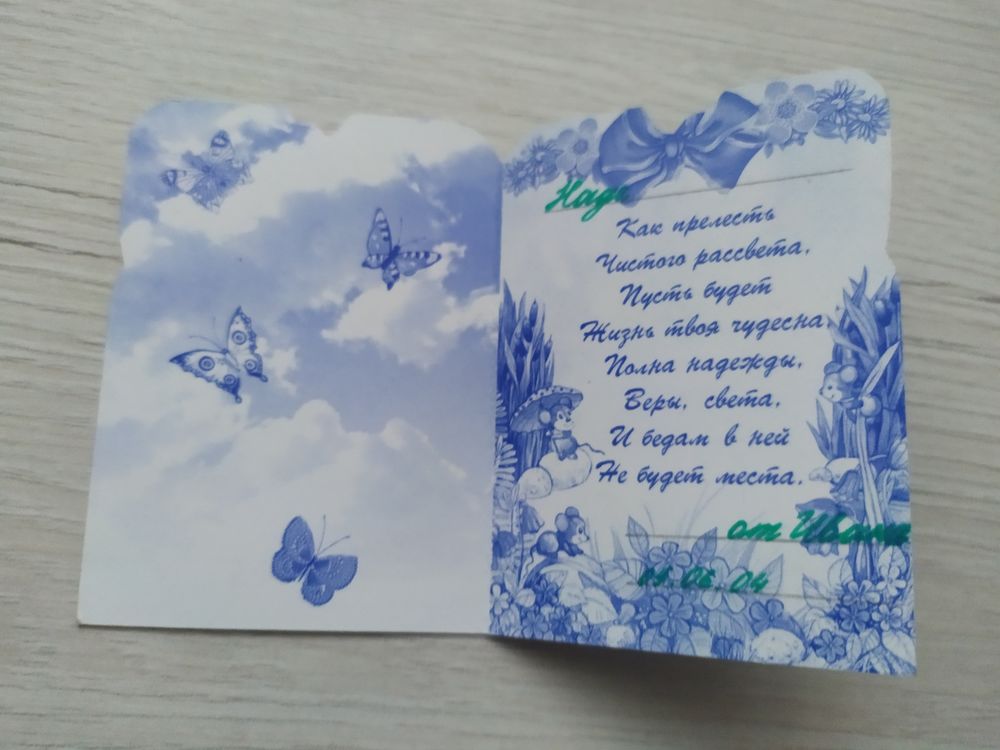 Наде
Как прелесть
Чистого рассвета,
Пусть будет
Жизнь твоя чудесна,
Полна надежды,
Веры, света,
И бедам в ней
Не будет места.
от Ивана
01.06.04